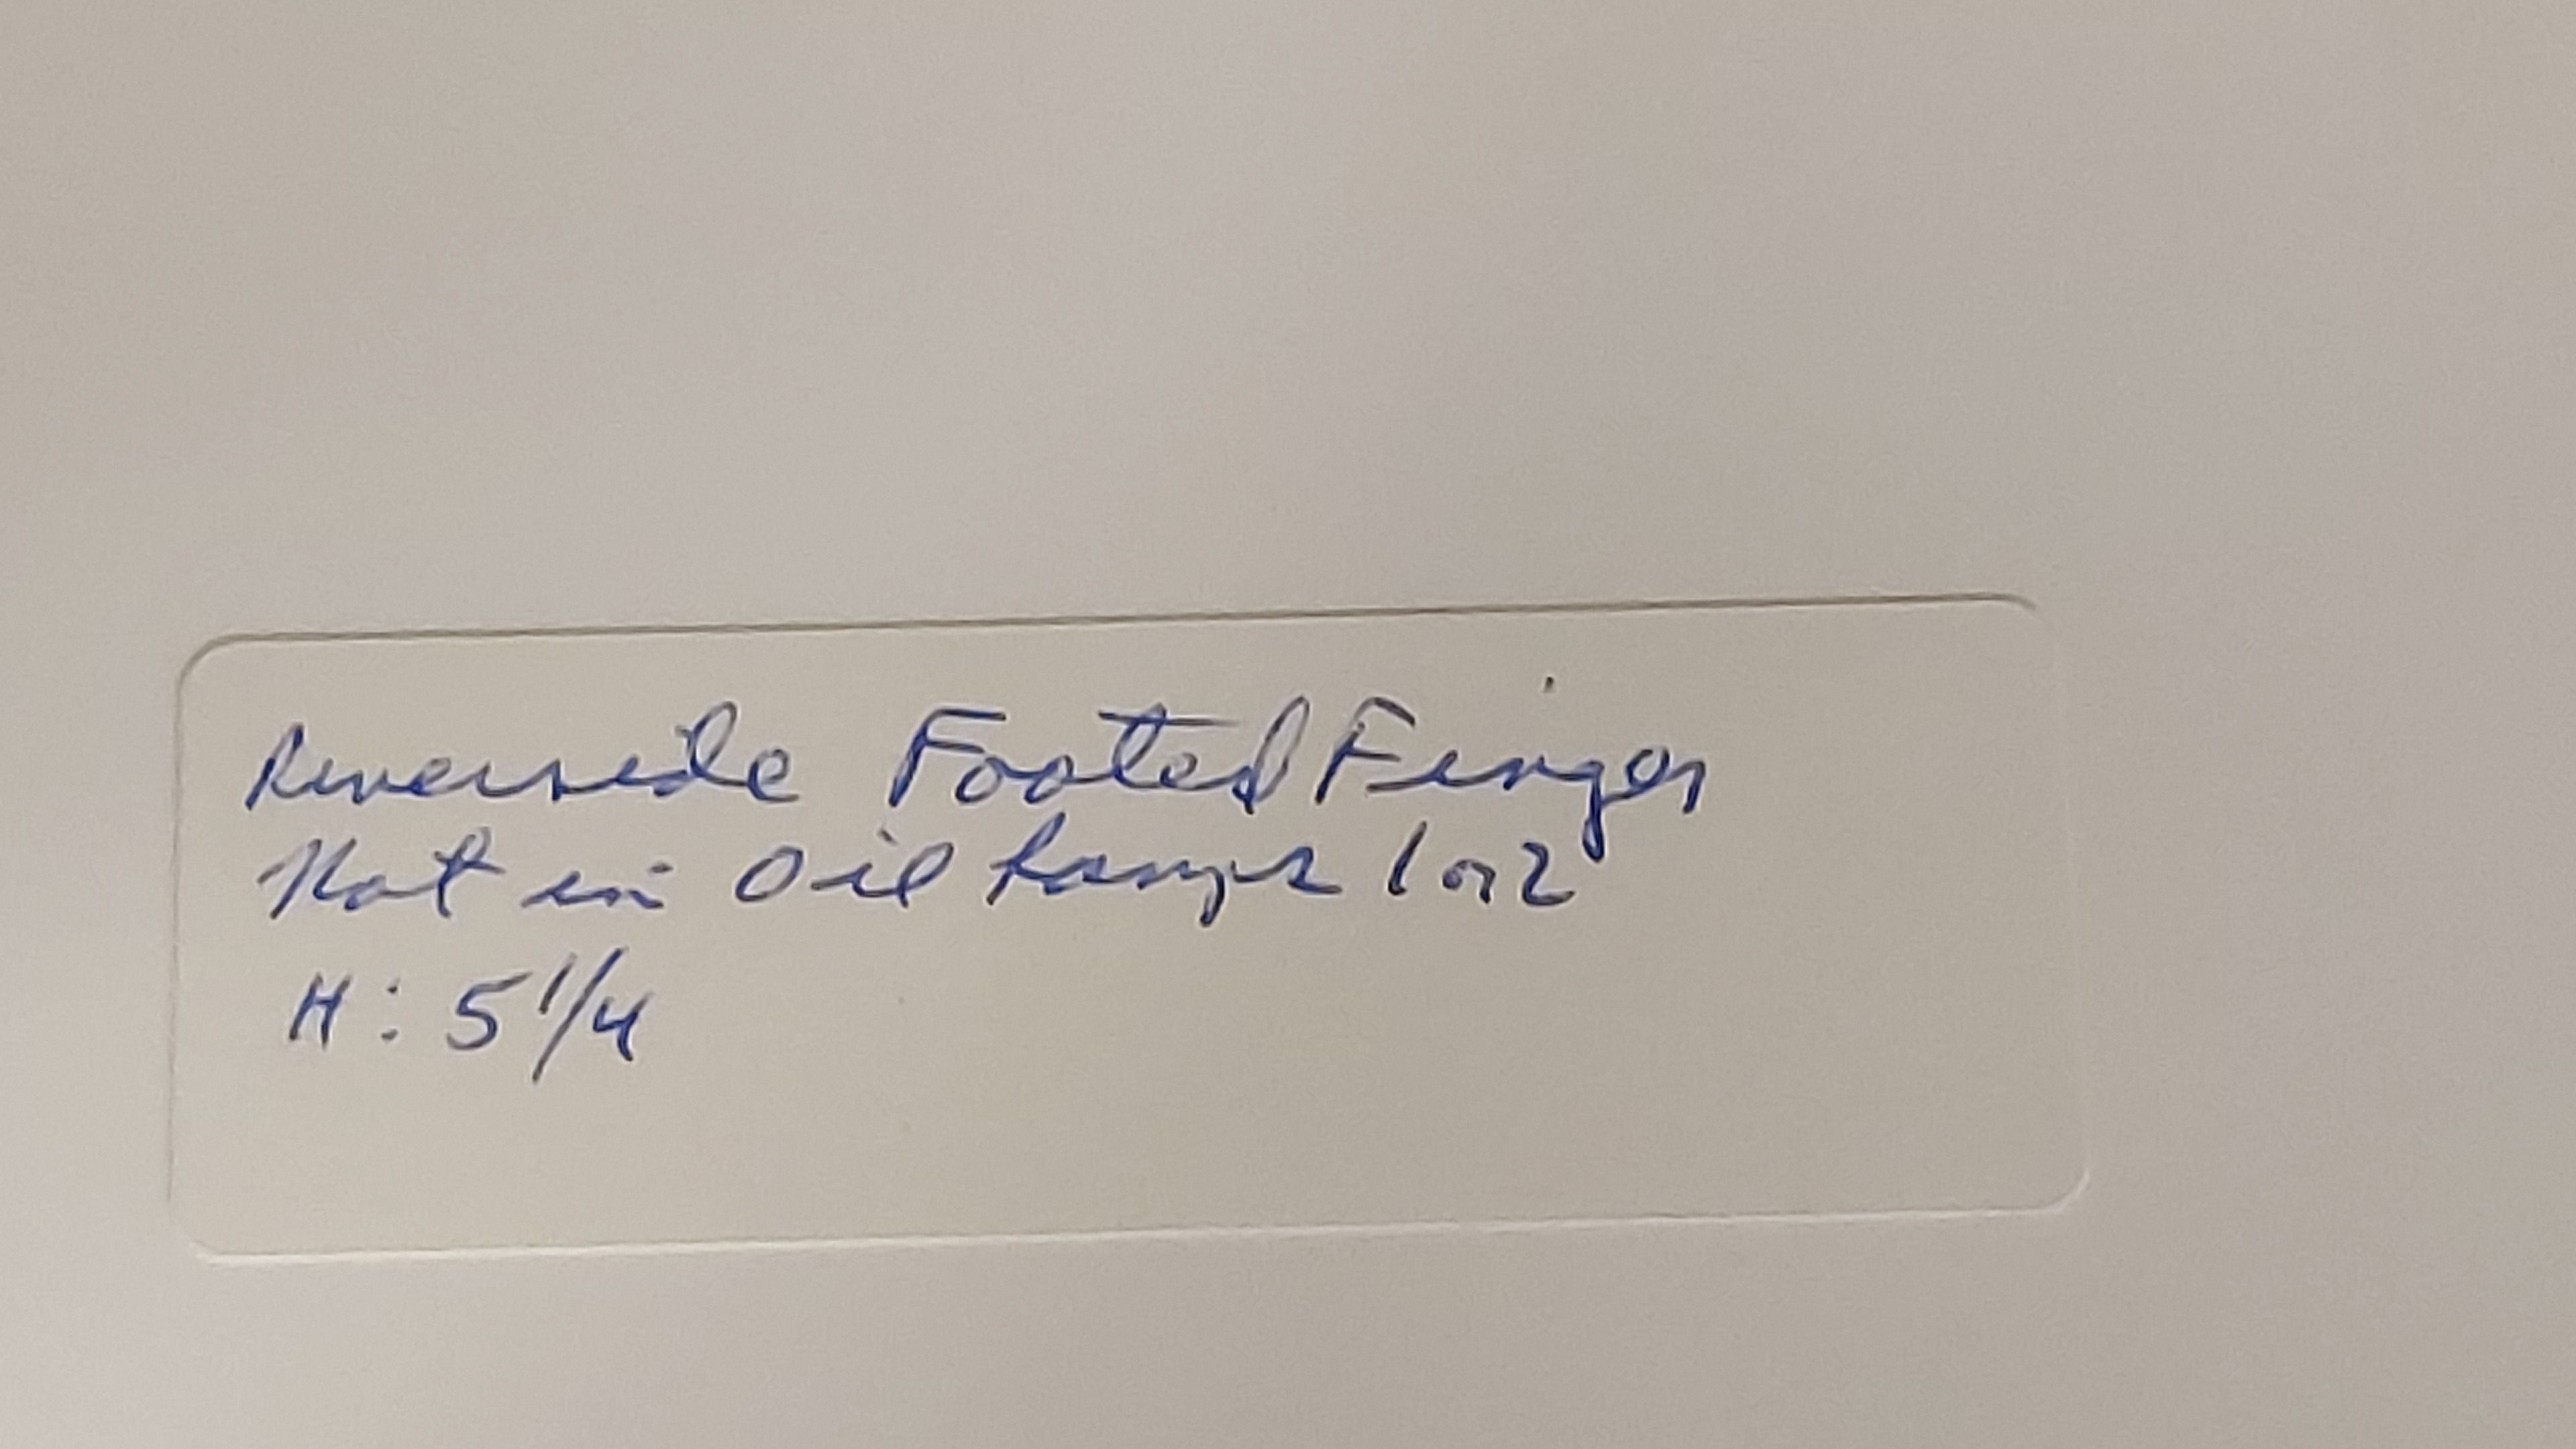 Riverside Footed Finger
Not in Oil Lamps 1 or 2
H: 5 1/4